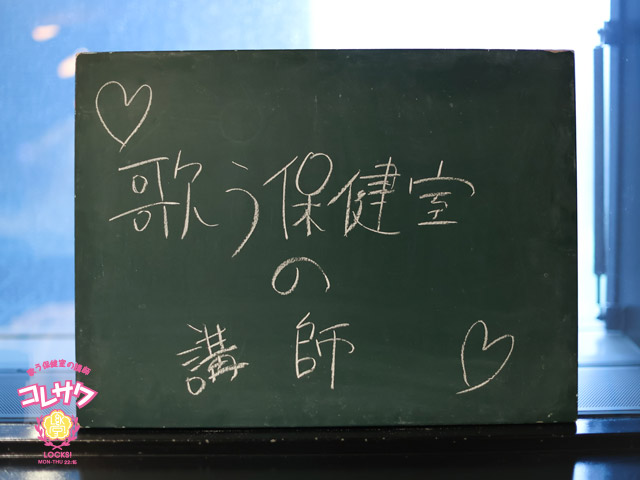 歌う保健室
の
講師
歌う保健室の講師
コレサワ
LOCKS!